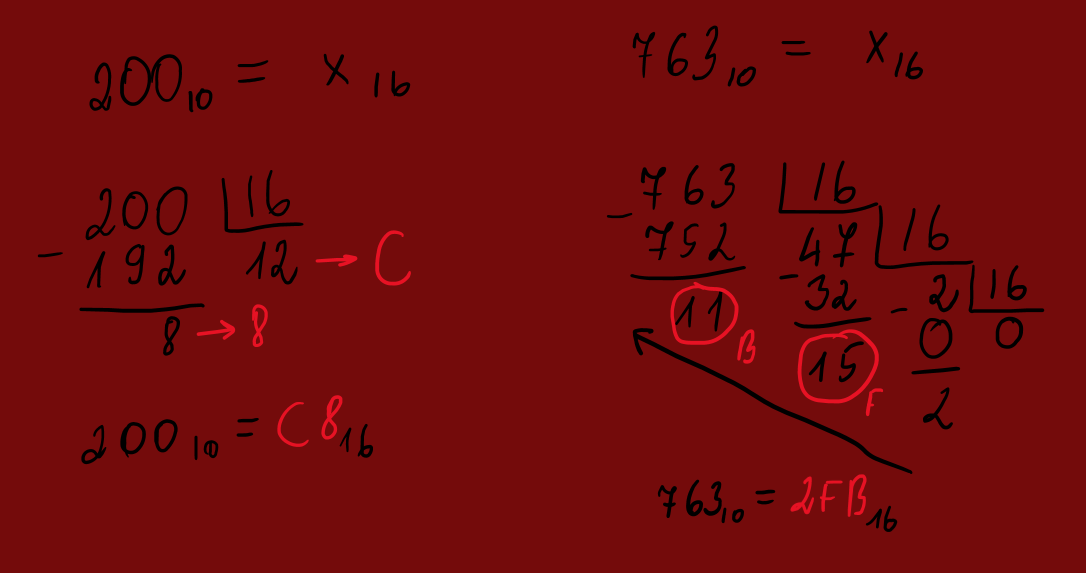 200₁₀ = x₁₆
200 | 16
- 192 12 → C
8 → 8
200₁₀ = C8₁₆
763₁₀ = x₁₆
763 | 16
- 752 47 | 16
11 B - 32 - 2 | 16
15 F 0 0
2
763₁₀ = 2FB₁₆